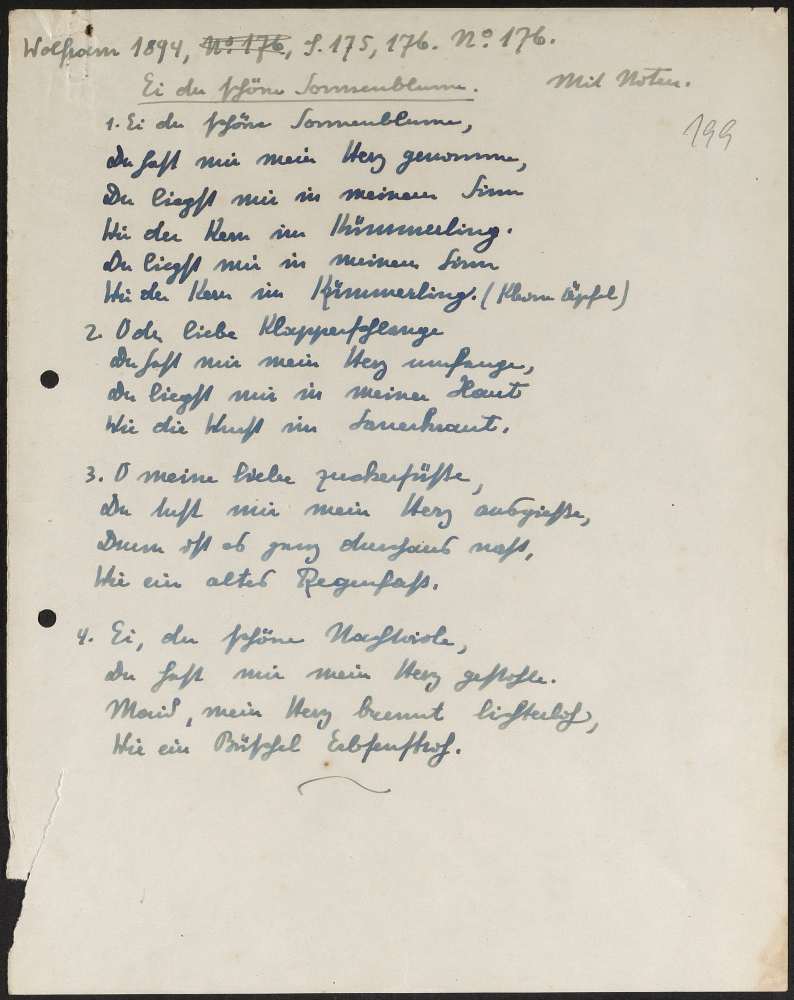 Wolfram 1894, No. 176, S. 175, 176. No. 176.
Ei du schöne Sonnenblume. Mit Noten.
199
1. Ei du schöne Sonnenblume,
Du hast mir mein Herz genomme,
Du liegst mir in meinem Sinn
Wie der Kern im Kümmerling.
Du liegst mir in meinem Sinn
Wie der Kern im Kümmerling. (Kleine Äpfel)
2. O du liebe Klapperschlange
Du hast mir mein Herz umfange,
Du liegst mir in meiner Haut
Wie die Wurst im Sauerkraut.
3. O meine liebe zuckersüße,
Du tust mir mein Herz ausgieße,
Drum ist es ganz durchaus naß,
Wie ein altes Regenfaß.
4. Ei, du schöne Nachtviole,
Du hast mir mein Herz gestohle.
Maid, mein Herz brennt lichterloh,
Wie ein Büschel Erbsenstroh.